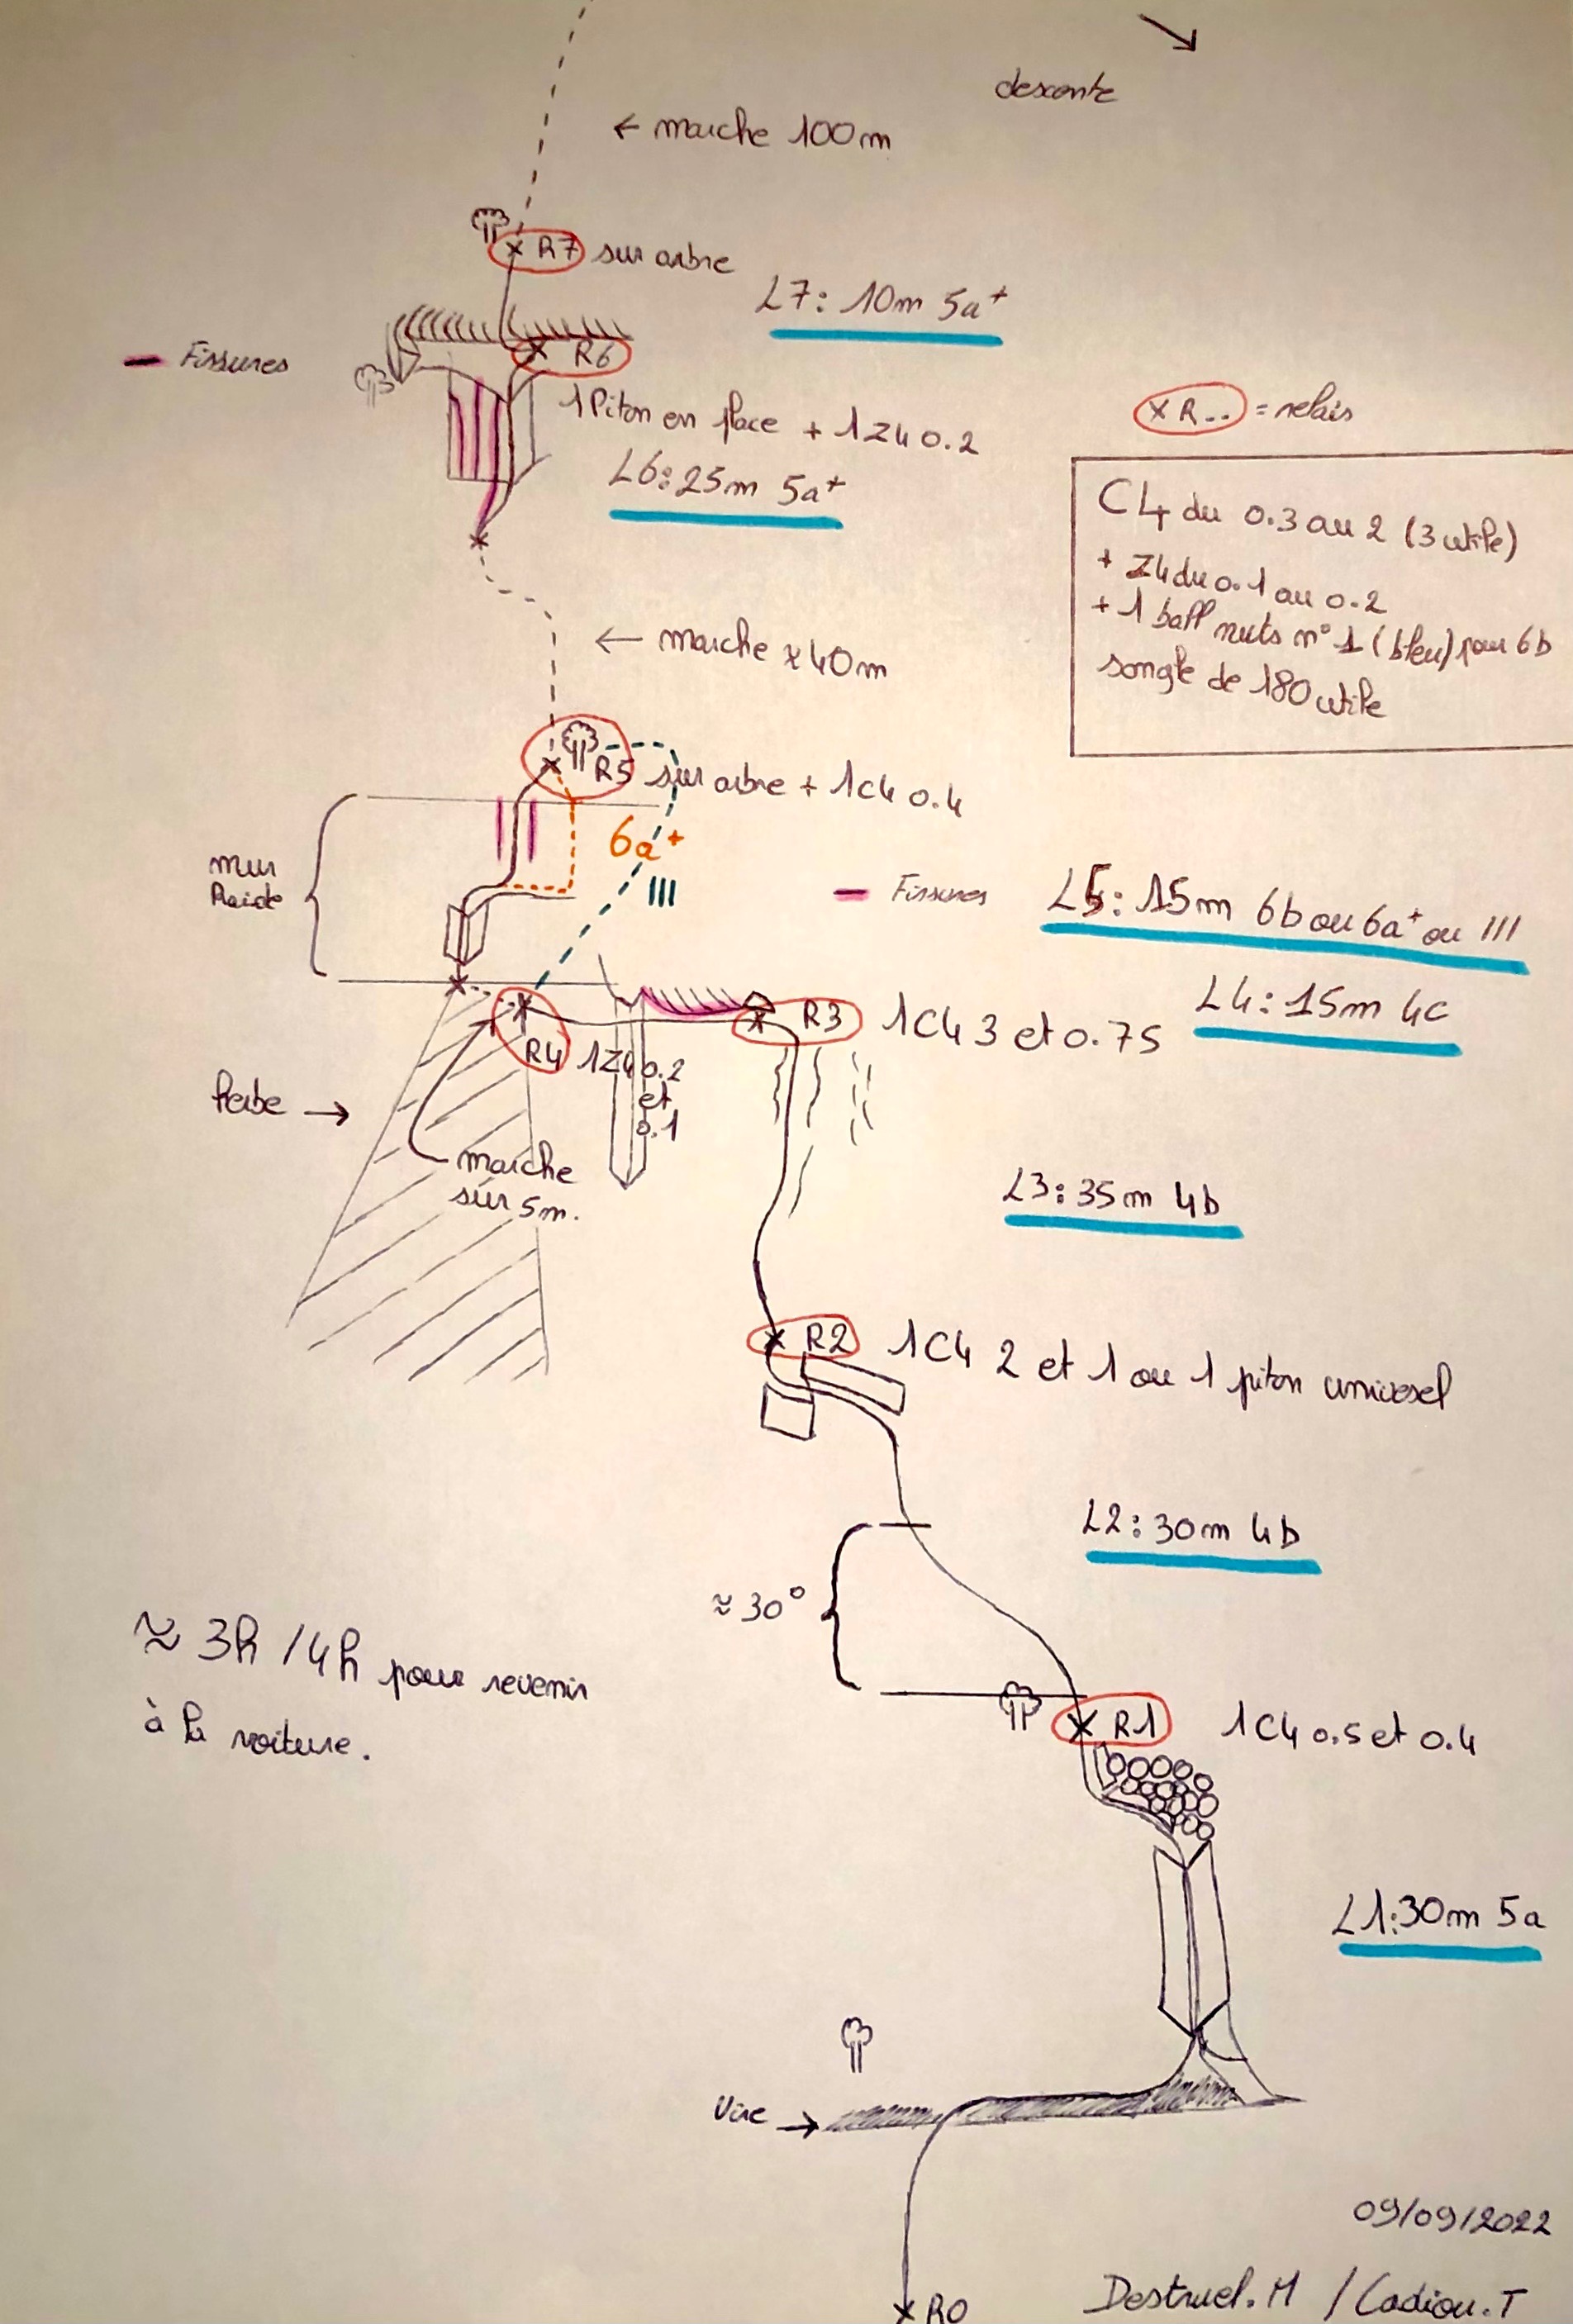 descente
← marche 100m
R7 sur arbre
L7: 10m 5a+
Fissures
R6
1 Piton en place + 1 Z4 0.2
L6: 25m 5a+
x R.. = relais
C4 du 0.3 au 2 (3 utile)
+ Z4 du 0.1 au 0.2
+ 1 ball nuts n° 1 (bleu) pour 6b
sangle de 180 utile
← marche x 40m
R5 sur arbre + 1C4 0.4
6a+
III
mur
Raide
Fissures
L5: 15m 6b ou 6a+ ou III
L4: 15m 4c
R3 1C4 3 et 0.75
R4 1Z4 0.2
et
0.1
herbe →
marche
sur 5m.
L3: 35m 4b
R2 1C4 2 et 1 ou 1 piton universel
L2: 30m 4b
≈ 30°
≈ 3h / 4h pour revenir
à la voiture.
R1 1C4 0.5 et 0.4
L1: 30m 5a
Vire →
09/09/2022
Destruel.M / Cadiou.T
x R0